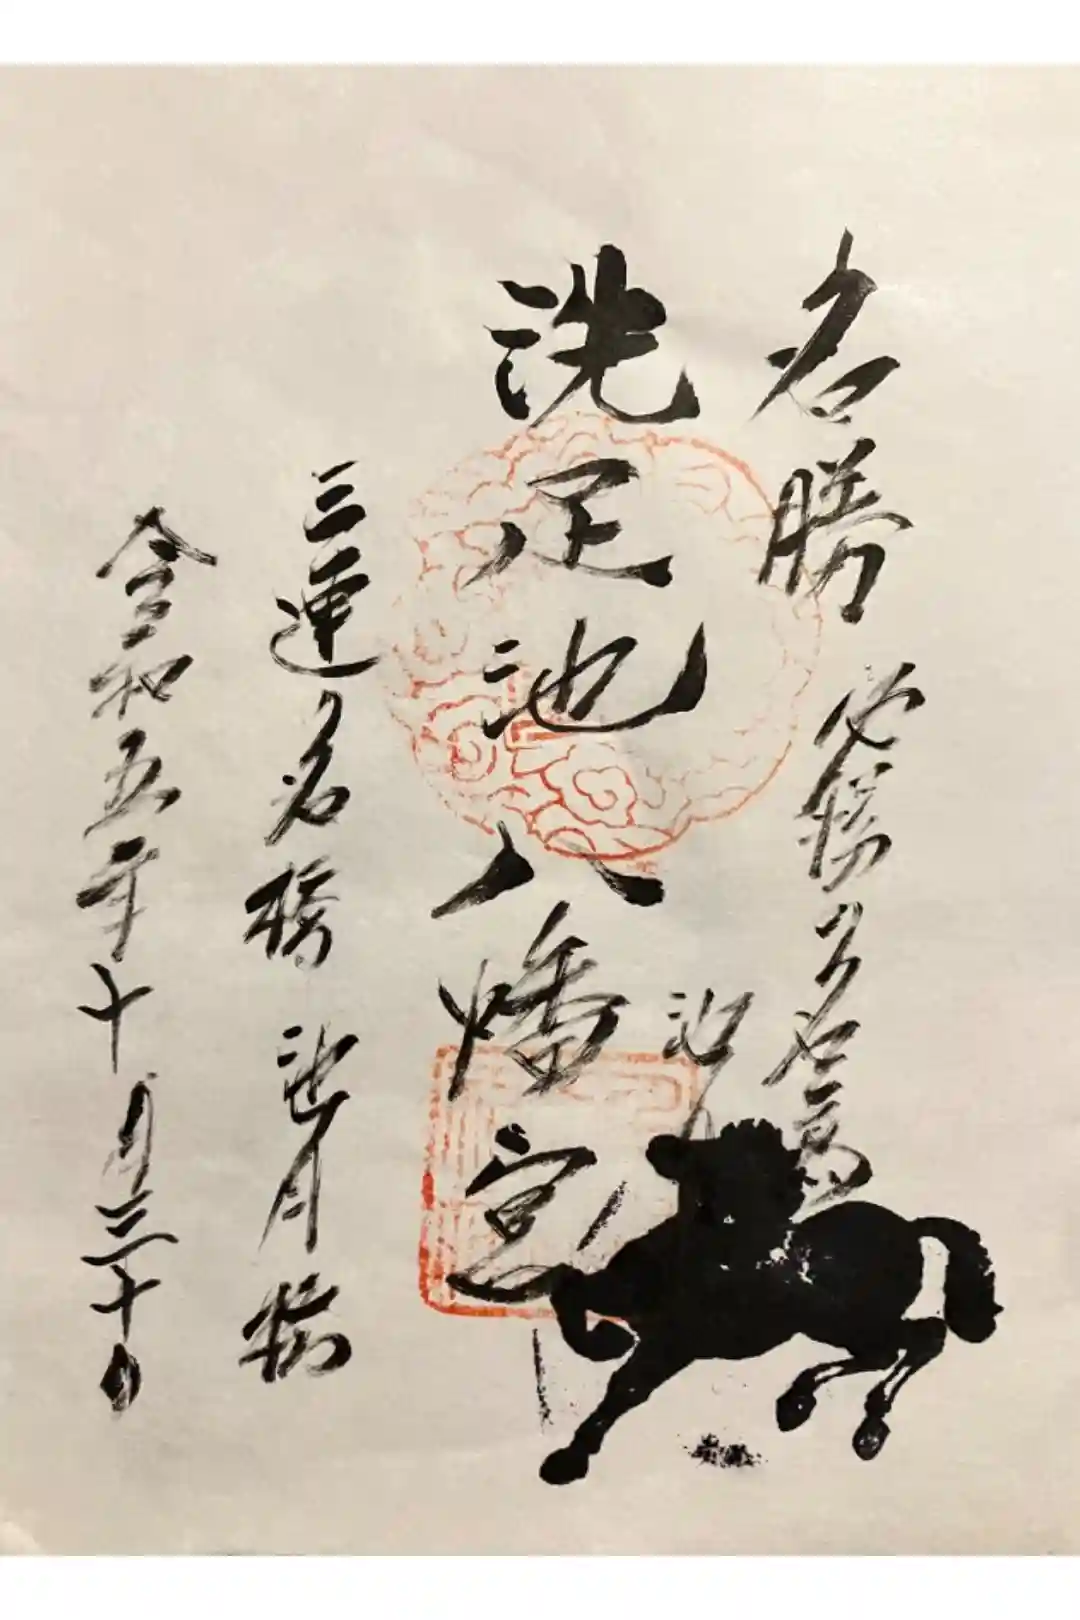 名勝
必勝の名馬
池月
洗足池八幡宮
三連の名橋 池月橋
令和五年十月三十日